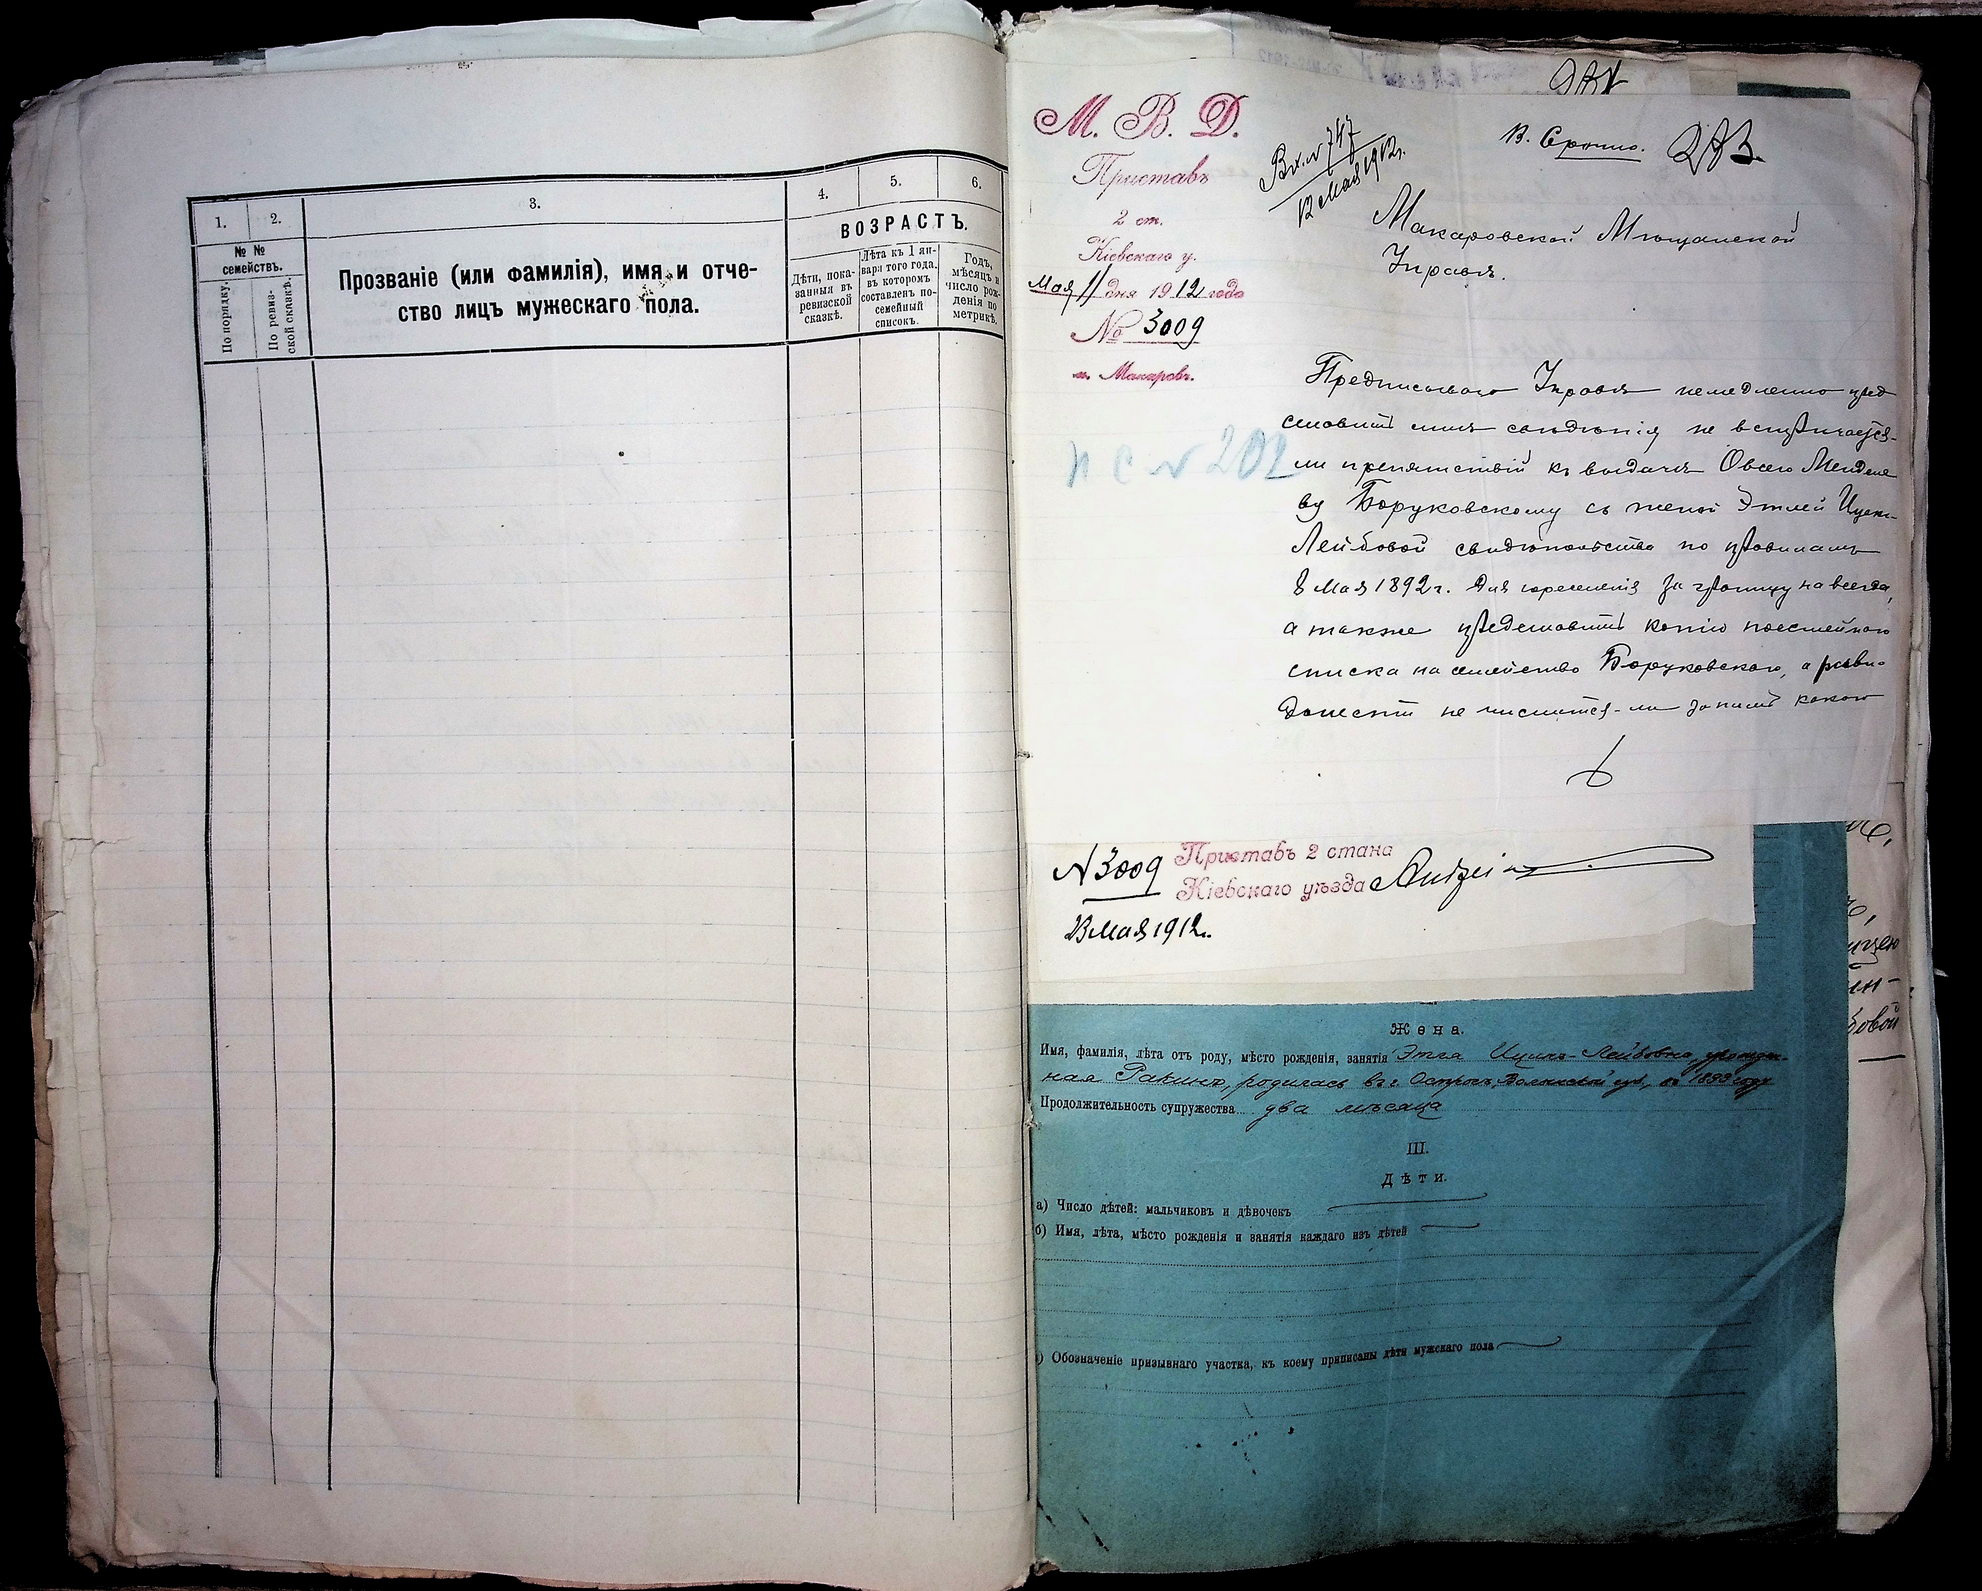 1.
2.
3.
4.
5.
6.
№ №
семействъ.
По порядку.
По ревиз-
ской сказкѣ.
Прозваніе (или фамилія), имя и отче-
ство лицъ мужескаго пола.
ВОЗРАСТЪ.
Дѣти, пока-
занныя въ
ревизской
сказкѣ.
Лѣта къ 1 ян-
варя того года,
въ которомъ
составленъ по-
семейный
списокъ.
Годъ,
мѣсяцъ и
число рож-
денія по
метрикѣ.
М. В. Д.
Приставъ
2 ст.
Кіевскаго у.
Мая 11 дня 1912 года
№ 3009
м. Макаровъ.
Вх. № 747
12 Мая 1912 г.
В. Срочно.
283.
Макаровской Мѣщанской
Управѣ.
п с № 202
Предписываю Управѣ немедленно пред
ставить мнѣ свѣдѣнія не встрѣчается-
ли препятствій къ выдачѣ Овсею Менделе
ву Боруковскому съ женой Этлей Ицко-
Лейбовой свидѣтельства по правиламъ
8 Мая 1892 г. для переселенія за границу на всегда,
а также представить копію посемейнаго
списка на семейство Боруковскаго, а равно
донести не числится-ли за нимъ какого
№ 3009
Приставъ 2 стана
Кіевскаго уѣзда
23 Мая 1912 г.
Жена.
Имя, фамилія, лѣта отъ роду, мѣсто рожденія, занятія Этля Ицикъ-Лейбовна, урожден-
ная Ракинъ, родилась въ г. Острогѣ, Волынской губ., въ 1893 году
Продолжительность супружества два мѣсяца
III.
Дѣти.
а) Число дѣтей: мальчиковъ и дѣвочекъ
б) Имя, лѣта, мѣсто рожденія и занятія каждаго изъ дѣтей
) Обозначеніе призывнаго участка, къ коему приписаны дѣти мужскаго пола